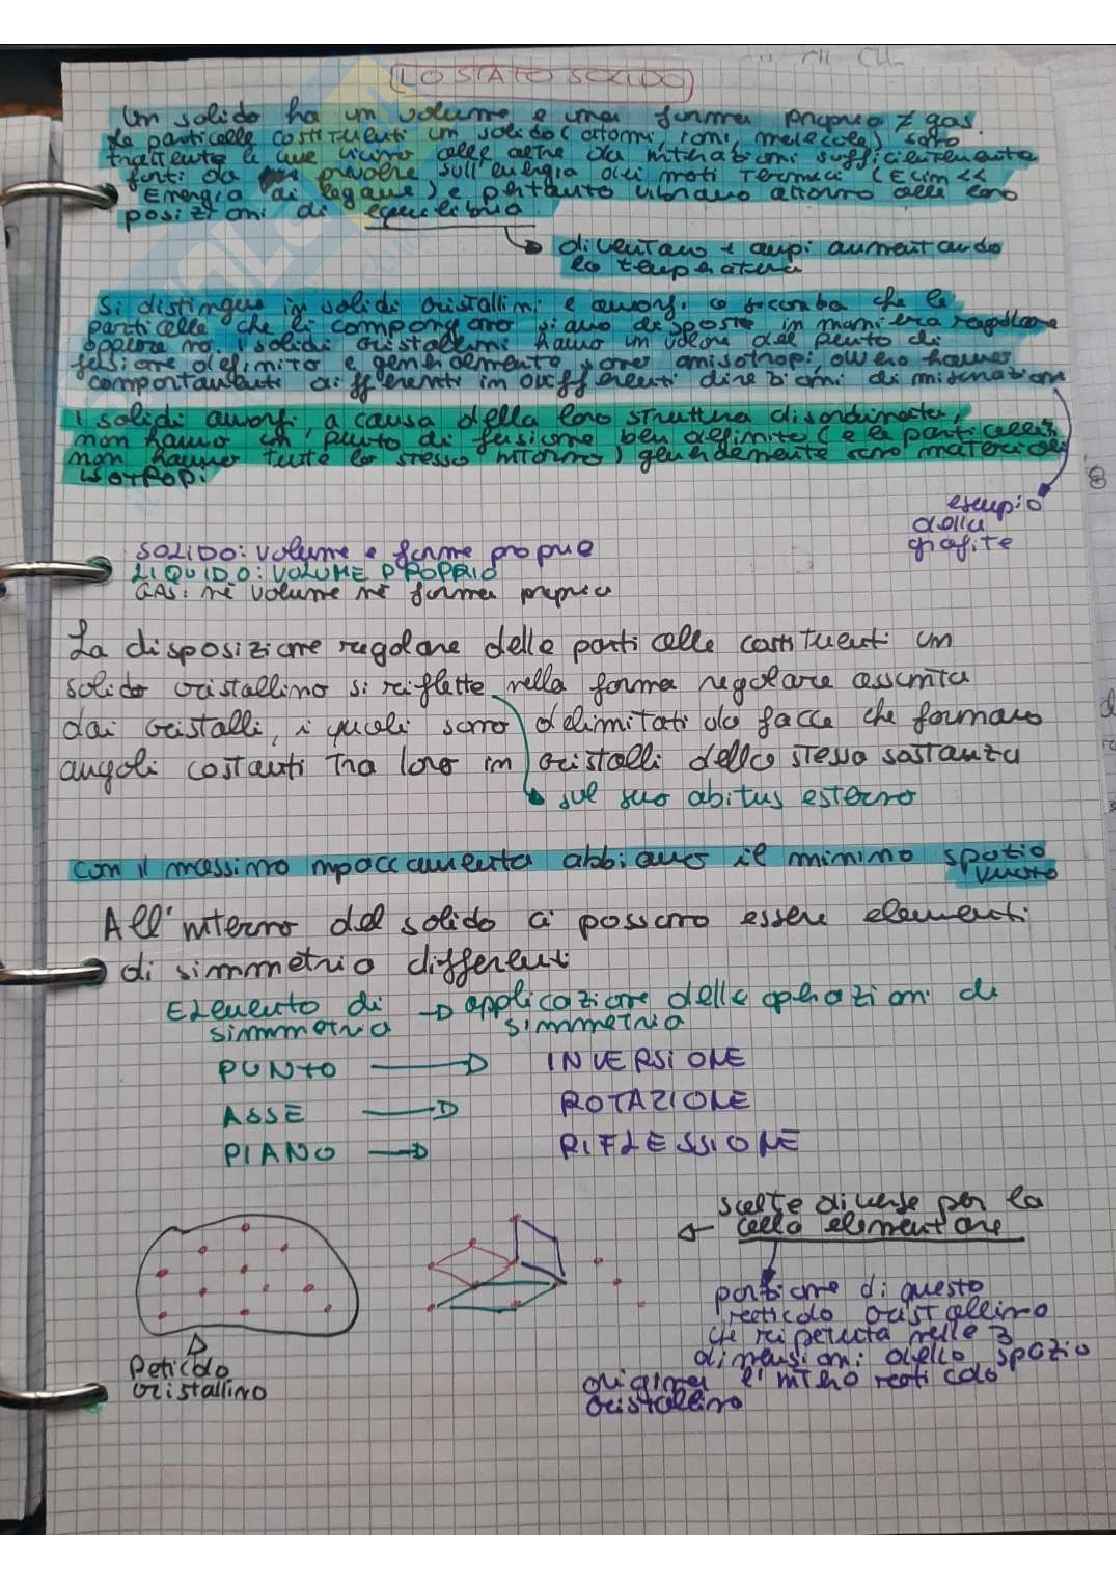 LO STATO SOLIDO
Un solido ha un volume e una forma propria ≠ gas.
Le particelle costituenti un solido (atomi, ioni, molecole) sono
trattenute le une vicino alle altre da interazioni sufficientemente
forti da prevalere sull'energia dei moti termici (Ecin <<
Energia di legame) e pertanto vibrano attorno alle loro
posizioni di equilibrio
diventano + ampi aumentando
la temperatura
Si distingue in solidi cristallini e amorfi a seconda che le
particelle che li compongono siano disposte in maniera regolare
oppure no. I solidi cristallini hanno un valore del punto di
fusione definito e generalmente sono anisotropi, ovvero hanno
comportamenti differenti in differenti direzioni di misurazione
I solidi amorfi, a causa della loro struttura disordinata,
non hanno un punto di fusione ben definito (e le particelle
non hanno tutte lo stesso intorno) generalmente sono materiali
isotropi.
esempio
della
grafite
SOLIDO: volume e forma propria
LIQUIDO: VOLUME PROPRIO
GAS: né volume né forma propria
La disposizione regolare delle particelle costituenti un
solido cristallino si riflette nella forma regolare assunta
dai cristalli, i quali sono delimitati da facce che formano
angoli costanti tra loro in cristalli della stessa sostanza
sul suo abitus esterno
con il massimo impaccamento abbiamo il minimo spazio
vuoto
All'interno del solido ci possono essere elementi
di simmetria differenti
Elemento di → applicazione delle operazioni di
simmetria simmetria
PUNTO → INVERSIONE
ASSE → ROTAZIONE
PIANO → RIFLESSIONE
scelte diverse per la
← cella elementare
porzione di questo
reticolo cristallino
che ripetuta nelle 3
dimensioni dello spazio
origina l'intero reticolo
cristallino
Reticolo
cristallino